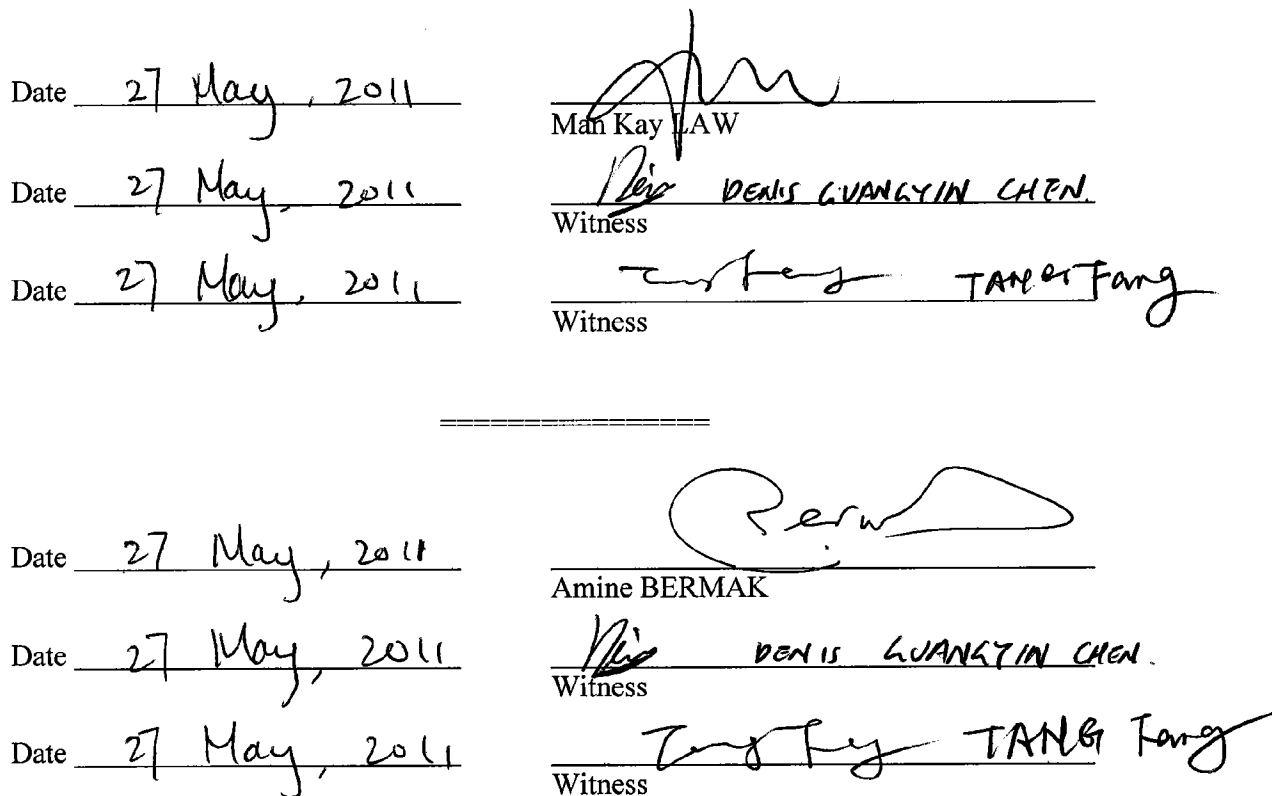 Date 27 May, 2011
Man Kay LAW
Date 27 May, 2011 DENIS GUANGYIN CHEN.
Witness
Date 27 May, 2011 TANG Fang
Witness
==================
Date 27 May, 2011
Amine BERMAK
Date 27 May, 2011 DENIS GUANGYIN CHEN.
Witness
Date 27 May, 2011 TANG Fang
Witness